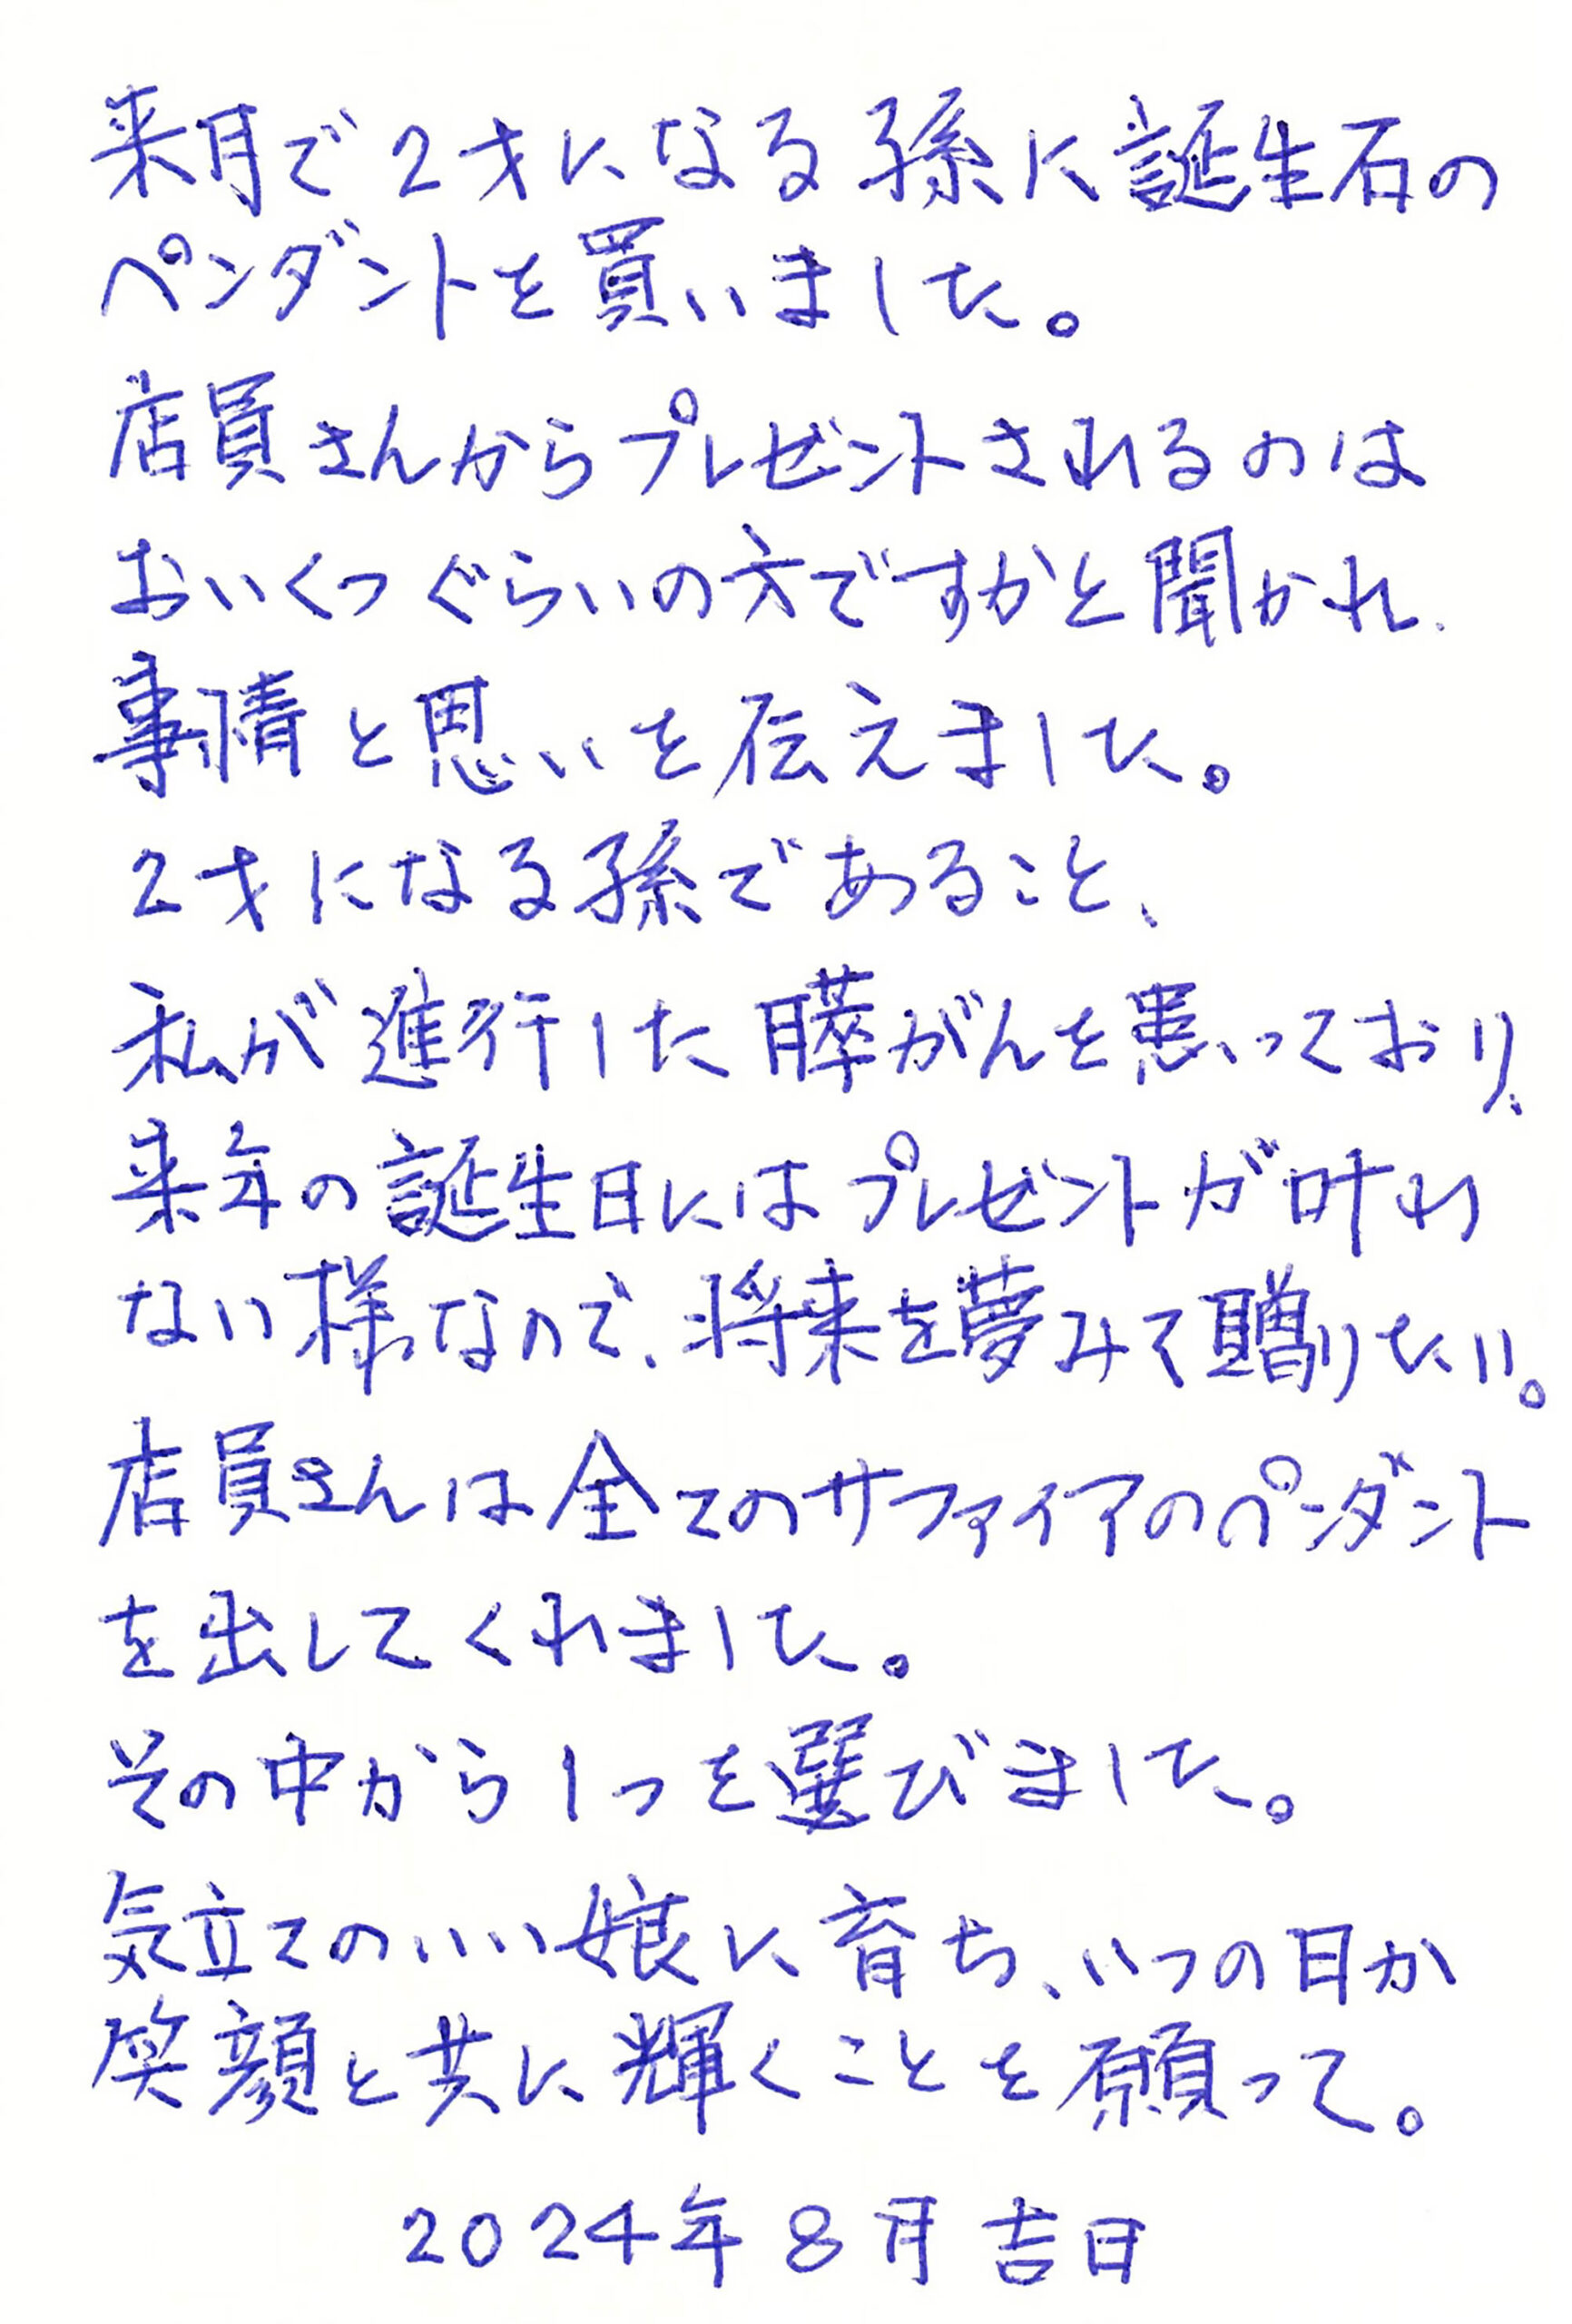 来月で2才になる孫に誕生石の
ペンダントを買いました。
店員さんからプレゼントされるのは
おいくつぐらいの方ですかと聞かれ、
事情と思いを伝えました。
2才になる孫であること、
私が進行した膵がんを患っており、
来年の誕生日にはプレゼントが叶わ
ない様なので、将来を夢みて贈りたい。
店員さんは全てのサファイアのペンダント
を出してくれました。
その中から1つを選びました。
気立てのいい娘に育ち、いつの日か
笑顔と共に輝くことを願って。
2024年8月吉日